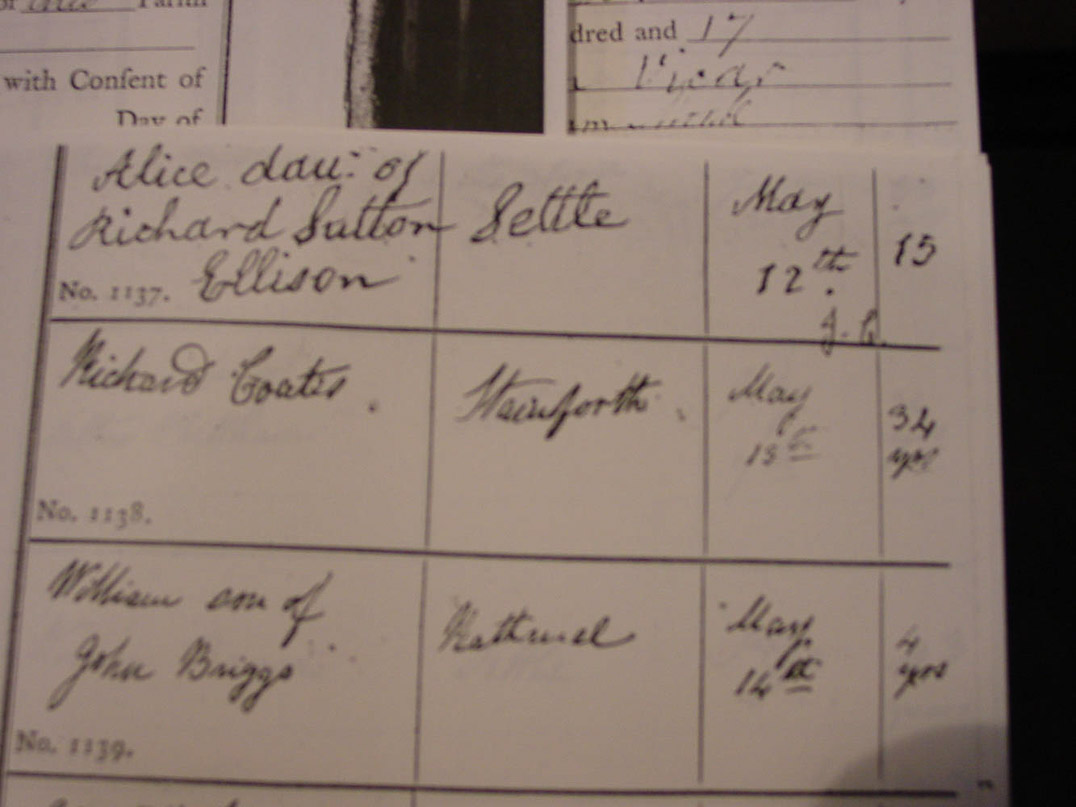 Parish
with Consent of
Day of
dred and 17
Vicar
Alice dau: of
Richard Sutton
Ellison
No. 1137.
Settle
May
12th.
J. C.
15
Richard Coates.
No. 1138.
Stainforth
May
13th
34
yrs
William son of
John Briggs
No. 1139.
May
14th
4
yrs